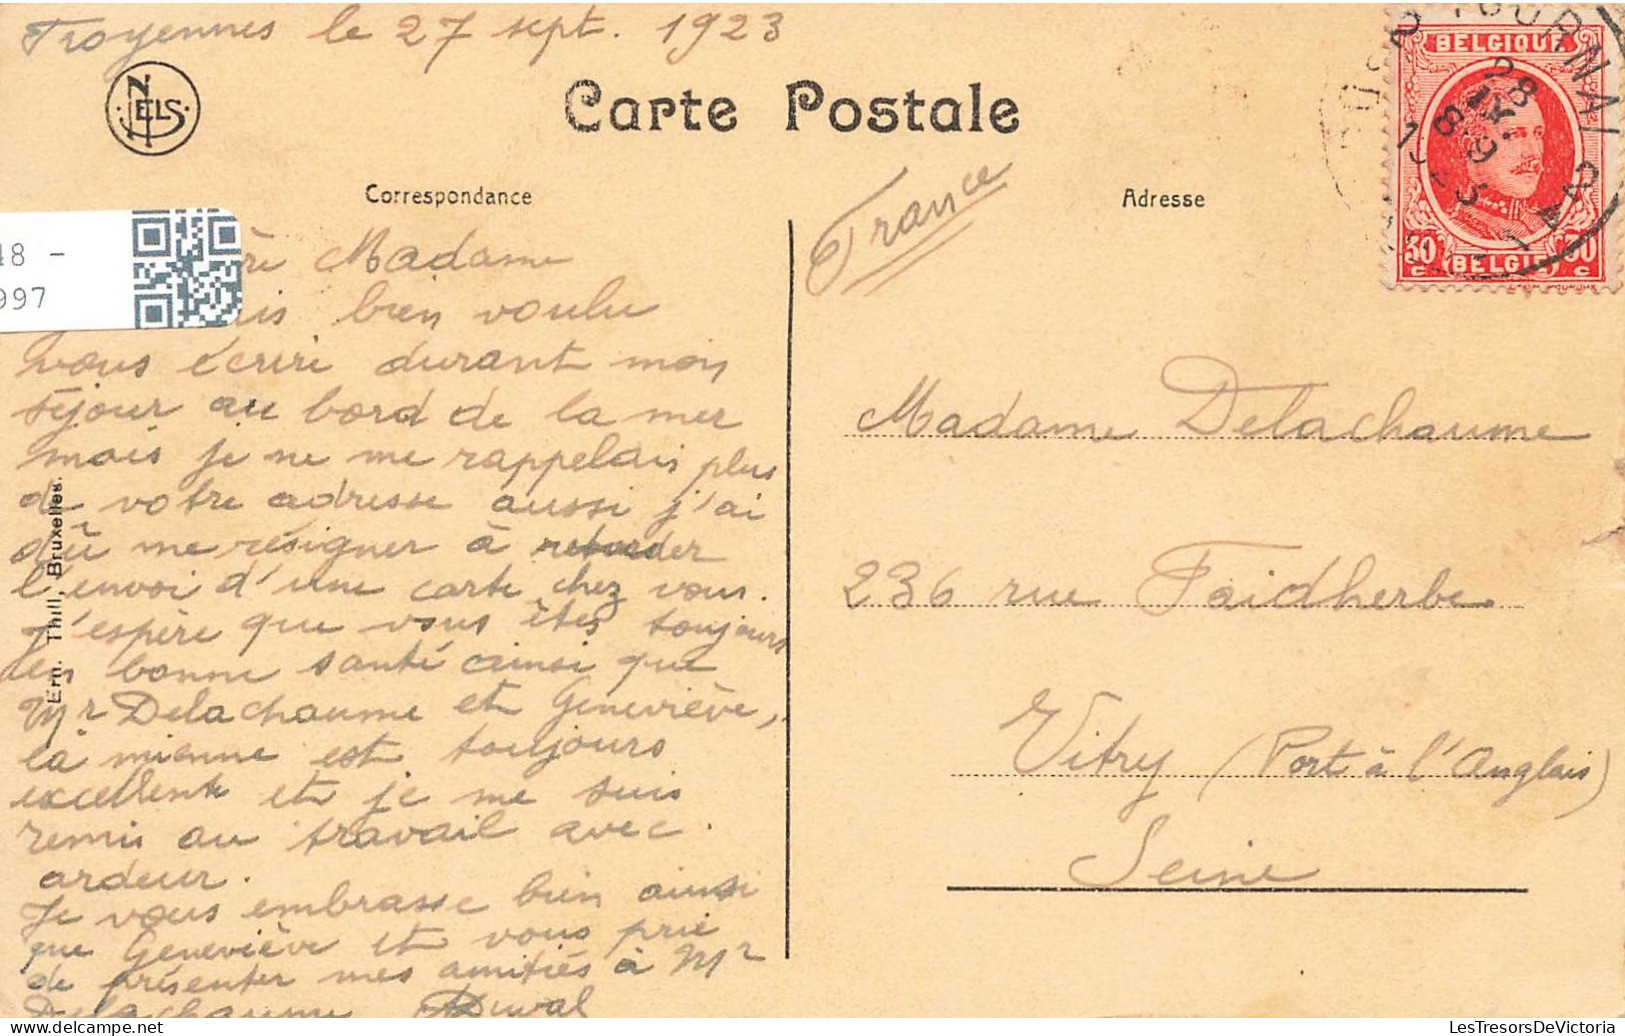 Froyennes le 27 sept. 1923
NELS
Carte Postale
Correspondance
Adresse
France
BELGIQUE
TOURNAI 2
28
30 30
c BELGIË c
18 -
997
Madame
bien voulu
vous écrire durant mon
séjour au bord de la mer
mais je ne me rappelais plus
de votre adresse aussi j'ai
dû me résigner à retarder
l'envoi d'une carte chez vous.
J'espère que vous êtes toujours
en bonne santé ainsi que
Mr Delachaume et Geneviève,
la mienne est toujours
excellente et je me suis
remis au travail avec
ardeur.
Je vous embrasse bien ainsi
que Geneviève et vous prie
de présenter mes amitiés à Mr
Delachaume Duval
Ern. Thill, Bruxelles.
Madame Delachaume
236 rue Faidherbe
Vitry (Port à l'Anglais)
Seine
LesTresorsDeVictoria